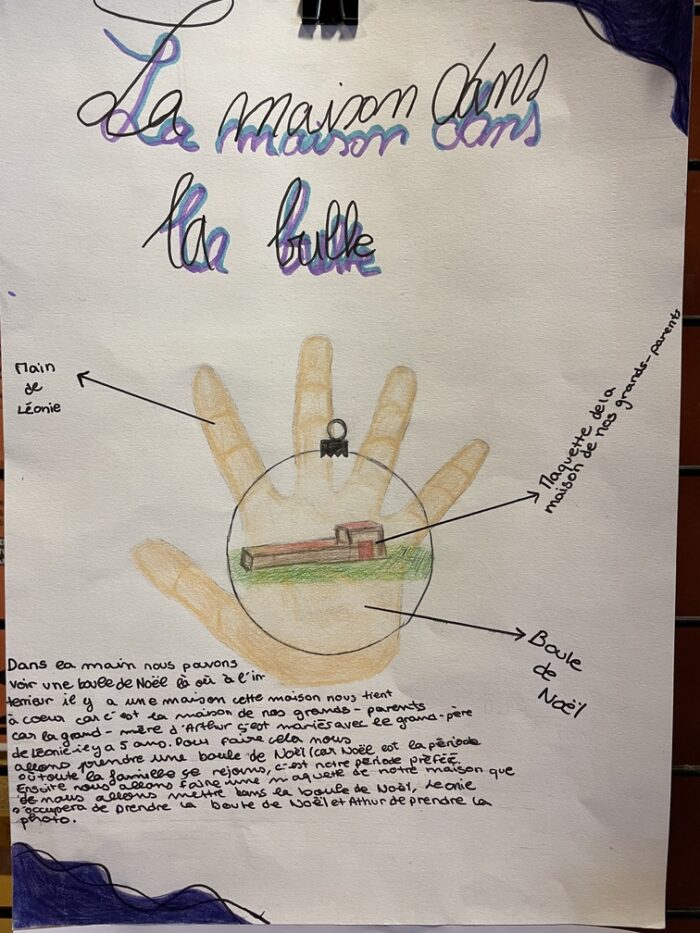 La maison dans
la bulle
Main
de
Léonie
Maquette de la
maison de nos grands-parents
Boule
de
Noël
Dans la main nous pouvons
voir une boule de Noël là où à l'in-
terieur il y a une maison cette maison nous tient
à coeur car c'est la maison de nos grands-parents
car la grand-mère d'Arthur s'est mariés avec le grand-père
de Léonie il y a 5 ano. Pour faire cela nous
allons prendre une boule de Noël (car Noël est la période
où toute la famille se rejoins, c'est notre période préféé.
Ensuite nous allons faire une maquete de notre maison que
de nous allons mettre dans la boule de Noël, Leonie
s'occupera de prendre la boule de Noël et Athur de prendre la
photo.